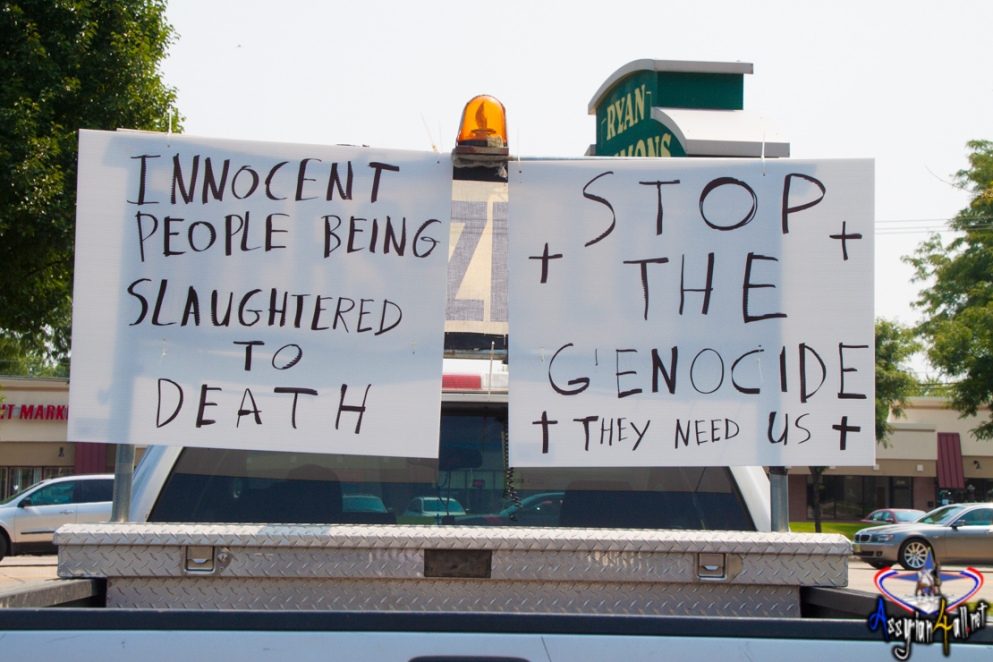 INNOCENT
PEOPLE BEING
SLAUGHTERED
TO
DEATH
STOP
THE
GENOCIDE
THEY NEED US
RYAN
CT MARK
Assyrian4all.net